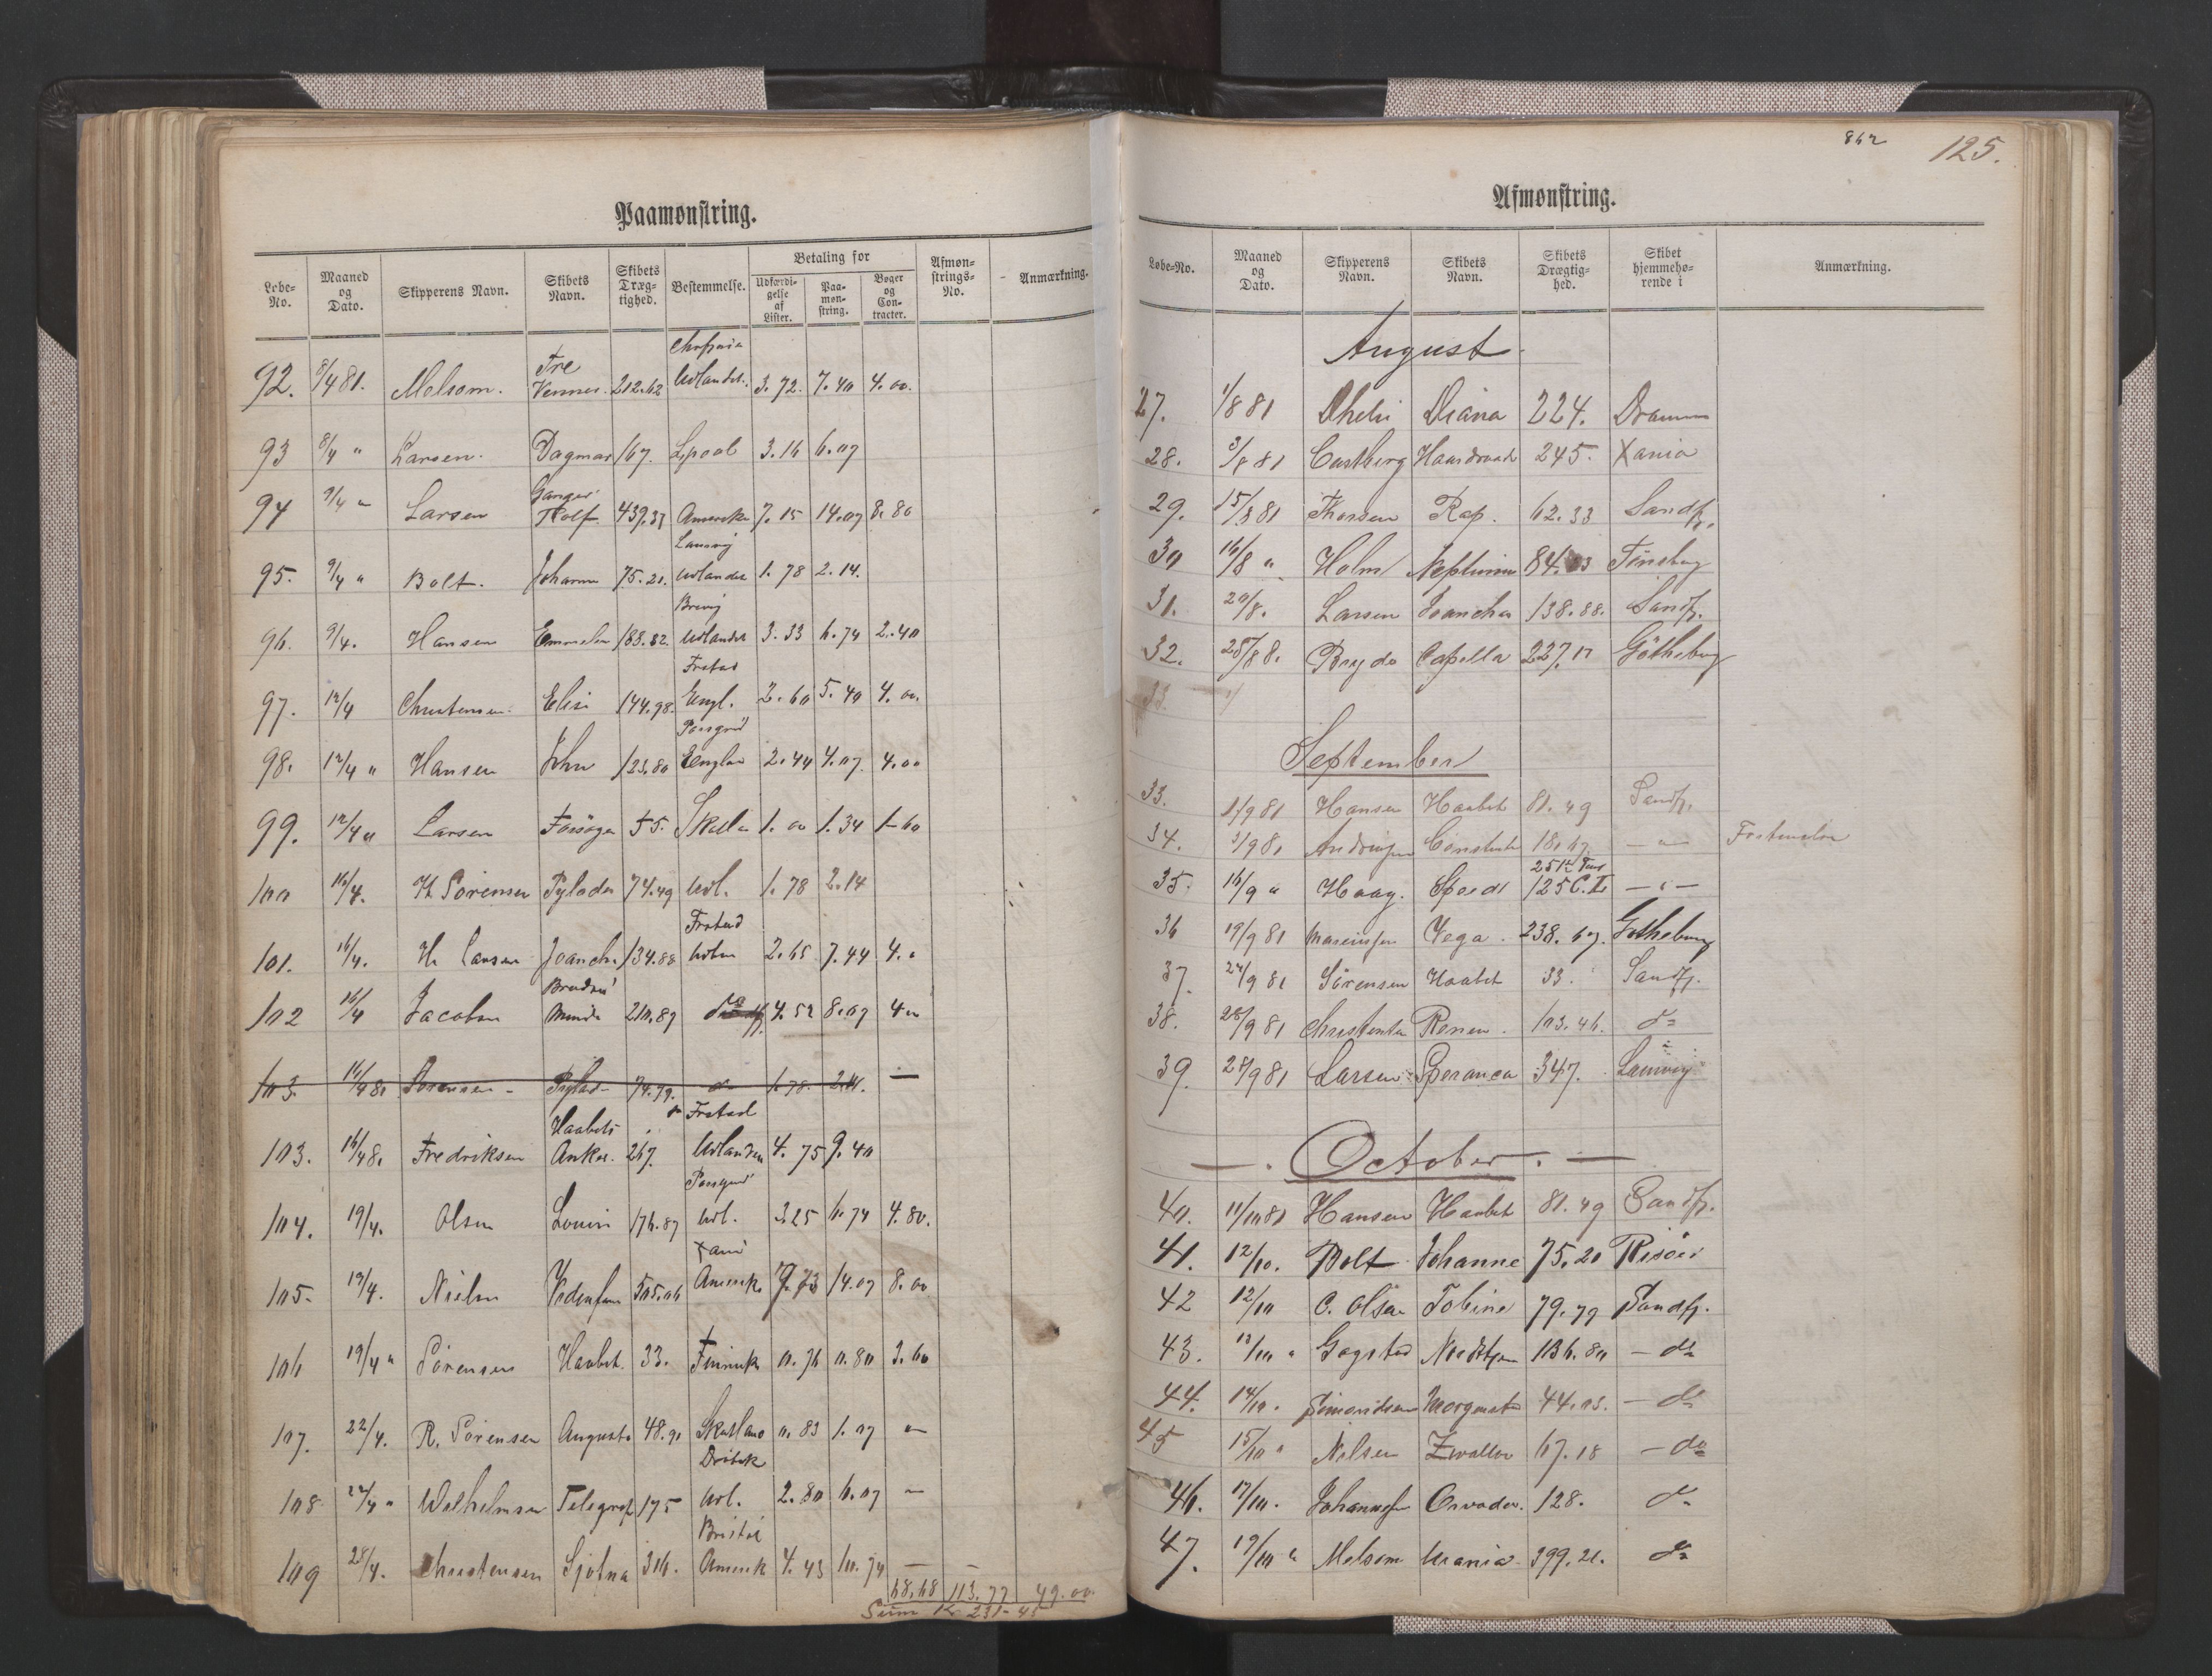 Paamønstring.
Løbe-No. Maaned og Dato. Skipperens Navn. Skibets Navn. Skibets Dræg-tighed. Bestemmelse. Betaling for Udfærdi-gelse af Lister. Paa-møn-string. Bøger og Con-tracter. Afmøn-strings-No. Anmærkning.
92. 8/4 81. Melsom. Tre Venner. 212.62 Udlandet. 3.72. 7.40 4.00.
93 8/4 " Larsen. Dagmar 167. Lpool 3.16 6.07
94 9/4 " Larsen Ganger Rolf 439.37 Amerika 7.15 14.07 8.80
95. 9/4 " Bolt. Johanne 75.20. Laurvig Udlandet 1.78 2.14.
96. 9/4. Hansen 188.82. Brevig Udlandet 3.33 6.74 2.40
97. 12/4 Christensen. Elise 144.98. Frstad Engl. 2.60 5.40 4.00.
98. 12/4 " Hansen John 123.80 Porsgrd England 2.44 4.07. 4.00
99. 12/4 " Larsen Forsøget 55. 1.00 1.34 1.60
100 16/4. Sørensen Pylades 74.49 Udl. 1.78 2.14
101. 16/4. H. Larsen Joanche 134.88 Frstad Udlan 2.65 7.44 4."
102 16/4 Jacobsen Minde 210.89 do 4.52 8.07 4.00
103. 16/4 81 Sørensen - Pylad- 74.79. do 1.78. 2.14. —
103. 16/4 81 Fredriksen Haabets Anker. 267. Frstad Udlandet 4.75 9.40
104. 19/4. Olsen Louise 176.87 Porsgrd Udl. 3.25 6.74 4.80.
105. 19/4. Nielsen 505.06 Xania Amerika 14.07 8.00
106 19/4 " Sørensen Haabet. 33. 0.76 0.80 3.60
107. 22/4. R. Sørensen Augusta 48.90 Skotland 0.83 1.07 "
108 22/4 " Wilhelmsen Telegraf 175 Drøbak Udl. 2.80 6.07 "
109 28/4. Christensen Sjofna 316. Bristol Amerik 4.43 10.74 — —
68,68 113,77 49.00.
Sum Kr 231-45
862
125.
Afmønstring.
Løbe-No. Maaned og Dato. Skipperens Navn. Skibets Navn. Skibets Drægtig-hed. Skibet hjemmehø-rende i Anmærkning.
August.
27. 1/8 81 Diana 224. Drammen
28. 3/8 81 Castberg Haardraade 245. Xania
29. 15/8 81 Thorsen Rap. 62.33 Sandfj.
30 16/8 " Holm Neptunus 84.03 Tønsberg
31. 20/8. Larsen Joancha 138.88. Sandfj.
32. 28/8 8. Bryde Capella 227.17 Götheborg
33.
September
33. 1/9 81 Hansen Haabet 81.49 Sandfj.
34. 3/9 81 18.67. — " —
35. 16/9 " Haag. Speed 251 125 C.L — " —
36 19/9 81 Mariussen Vega. 238.67. Gotheborg
37. 24/9 81 Sørensen Haabet 33. Sandfj.
38. 28/9 81 Christensen 103.46. do
39. 28/9 81 Larsen Speranca 347. Laurvig
— . October . —
40. 11/10 81 Hansen Haabet 81.49 Sandfj.
41. 12/10. Bolt Johanne 75.20 Risøer
42 12/10 C. Olsen Tobine 79.79 Sandfj.
43. 13/10 " Gogstad 136.80 — do
44. 14/10. Simonidsen 44.03. — do
45 15/10 " Nilsen 67.18 — do
46. 17/10. Johannesen Orvador. 128. do
47. 19/10 " Melsom Urania. 399.21. do